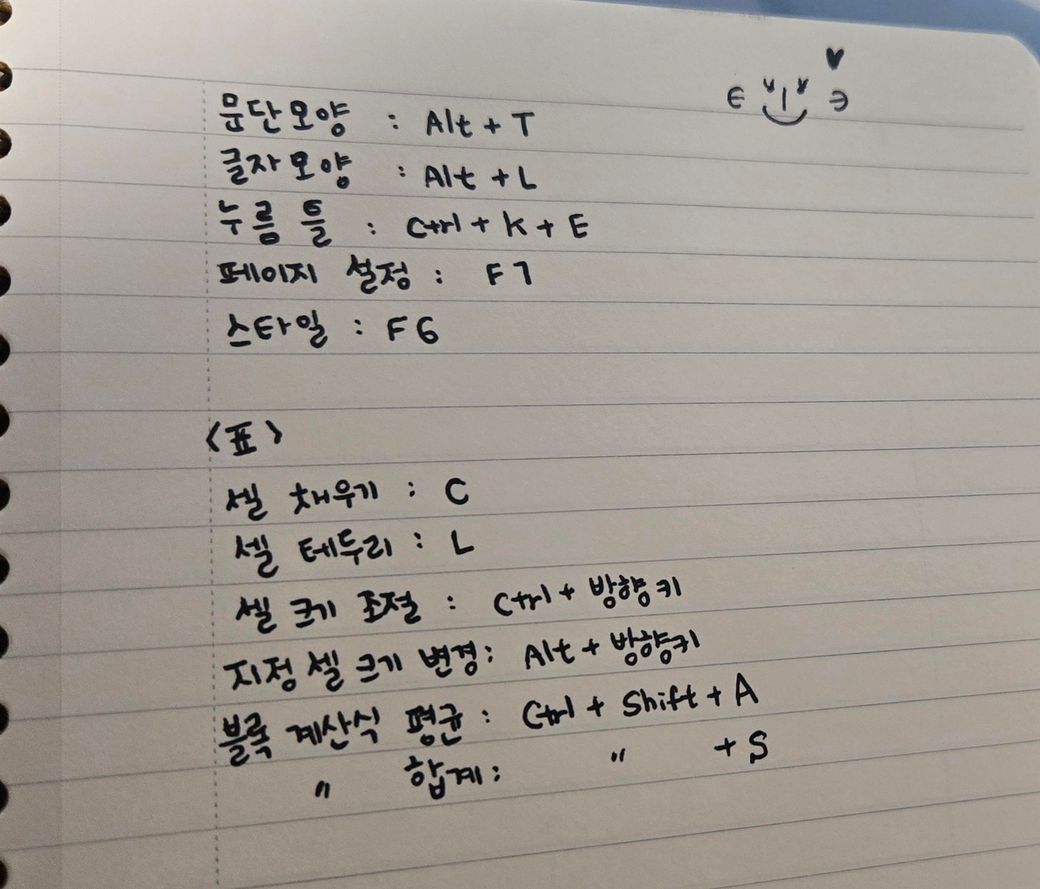 문단모양 : Alt + T
글자모양 : Alt + L
누름 틀 : Ctrl + K + E
페이지 설정 : F7
스타일 : F6
<표>
셀 채우기 : C
셀 테두리 : L
셀 크기 조절 : Ctrl + 방향키
지정 셀 크기 변경 : Alt + 방향키
블록 계산식 평균 : Ctrl + Shift + A
〃 합계 : 〃 + S